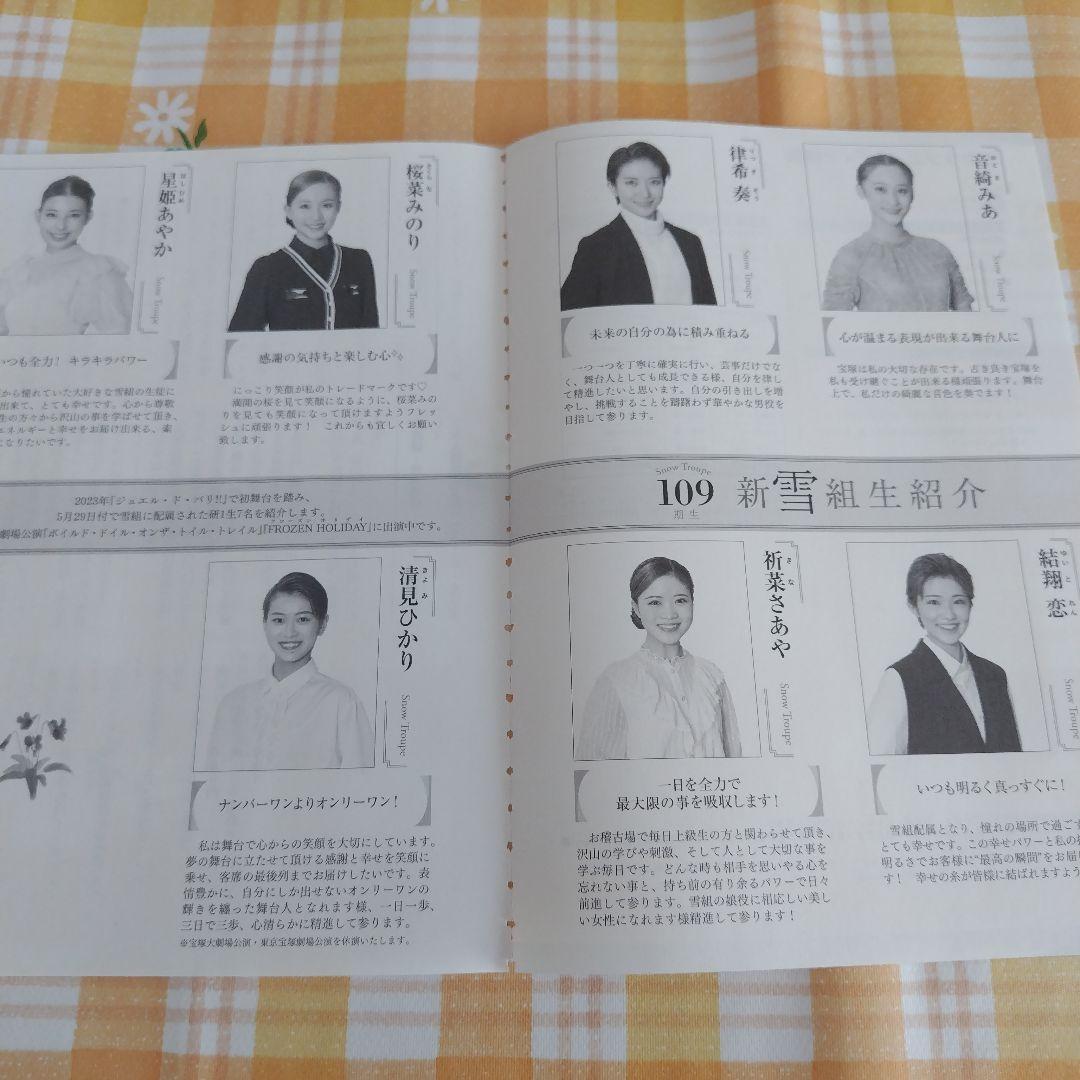 新雪組生紹介
Snow Troupe
109
期生
音綺みあ
おとき
Snow Troupe
心が温まる表現が出来る舞台人に
宝塚は私の大切な存在です。古き良き宝塚を
私も受け継ぐことが出来る様頑張ります。舞台
上で、私だけの綺麗な音色を奏でます!
律希 奏
りつき そう
Snow Troupe
未来の自分の為に積み重ねる
一つ一つを丁寧に確実に行い、芸事だけでな
く、舞台人としても成長できる様、自分を律し
て精進したいと思います。自分の引き出しを増
やし、挑戦することを躊躇わず華やかな男役を
目指して参ります。
桜菜みのり
さくらな
Snow Troupe
感謝の気持ちと楽しむ心✧
にっこり笑顔が私のトレードマークです♡
満開の桜を見て笑顔になるように、桜菜みの
りを見ても笑顔になって頂けますようフレッ
シュに頑張ります! これからも宜しくお願い
致します。
星姫あやか
ほしひめ
Snow Troupe
いつも全力! キラキラパワー
から憧れていた大好きな雪組の生徒に
出来て、とても幸せです。心から尊敬
生の方々から沢山の事を学ばせて頂き、
エネルギーと幸せをお届け出来る、楽
になりたいです。
2023年『ジュエル・ド・パリ!!』で初舞台を踏み、
5月29日付で雪組に配属された研1生7名を紹介します。
劇場公演『ボイルド・ドイル・オンザ・トイル・トレイル』『FROZEN HOLIDAY』に出演中です。
フローズン ホリデイ
結翔 恋
ゆいと れん
Snow Troupe
いつも明るく真っすぐに!
雪組配属となり、憧れの場所で過ごす
とても幸せです。この幸せパワーと私の
明るさでお客様に“最高の瞬間”をお届け
す! 幸せの糸が皆様に結ばれますよう
祈菜さあや
きな
Snow Troupe
一日を全力で
最大限の事を吸収します!
お稽古場で毎日上級生の方と関わらせて頂き、
沢山の学びや刺激、そして人として大切な事を
学ぶ毎日です。どんな時も相手を思いやる心を
忘れない事と、持ち前の有り余るパワーで日々
前進して参ります。雪組の娘役に相応しい美し
い女性になれます様精進して参ります!
清見ひかり
きよみ
Snow Troupe
ナンバーワンよりオンリーワン!
私は舞台で心からの笑顔を大切にしています。
夢の舞台に立たせて頂ける感謝と幸せを笑顔に
乗せ、客席の最後列までお届けしたいです。表
情豊かに、自分にしか出せないオンリーワンの
輝きを纏った舞台人となれます様、一日一歩、
三日で三歩、心清らかに精進して参ります。
※宝塚大劇場公演・東京宝塚劇場公演を休演いたします。